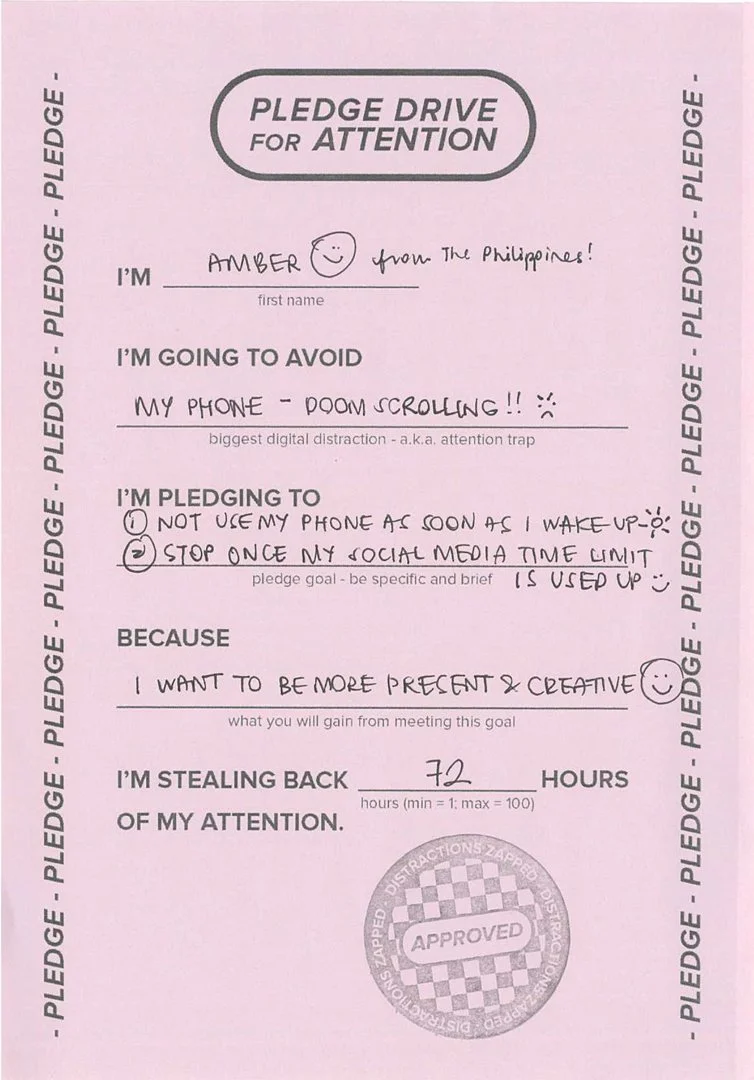 PLEDGE DRIVE
FOR ATTENTION
- PLEDGE - PLEDGE - PLEDGE - PLEDGE - PLEDGE - PLEDGE - PLEDGE -
I'M AMBER from The Philippines!
first name
I'M GOING TO AVOID
MY PHONE - DOOM SCROLLING!!
biggest digital distraction - a.k.a. attention trap
I'M PLEDGING TO
① NOT USE MY PHONE AS SOON AS I WAKE UP-
② STOP ONCE MY SOCIAL MEDIA TIME LIMIT
IS USED UP
pledge goal - be specific and brief
BECAUSE
I WANT TO BE MORE PRESENT & CREATIVE
what you will gain from meeting this goal
I'M STEALING BACK 72 HOURS
hours (min = 1; max = 100)
OF MY ATTENTION.
DISTRACTIONS ZAPPED - DISTRACTIONS ZAPPED - DISTRACTIONS ZAPPED -
APPROVED
- PLEDGE - PLEDGE - PLEDGE - PLEDGE - PLEDGE - PLEDGE - PLEDGE -